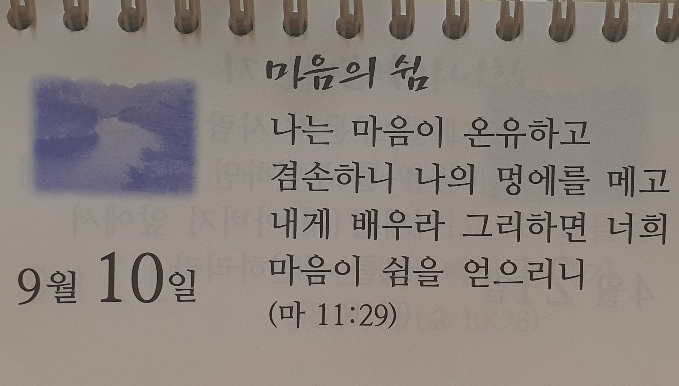 마음의 쉼
나는 마음이 온유하고
겸손하니 나의 멍에를 메고
내게 배우라 그리하면 너희
마음이 쉼을 얻으리니
(마 11:29)
9월 10일